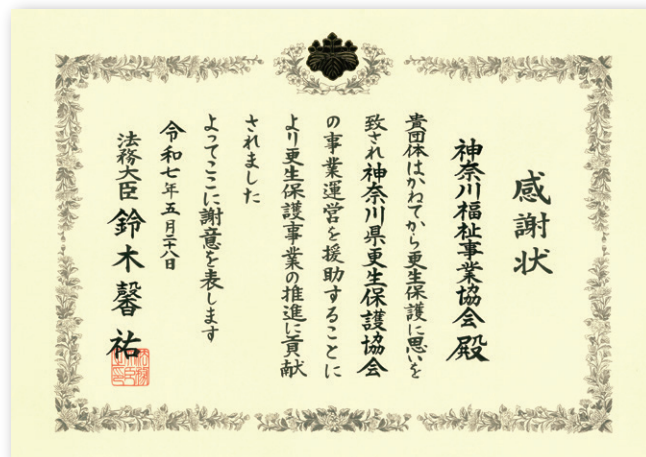 感謝状
神奈川福祉事業協会殿
貴団体はかねてから更生保護に思いを
致され神奈川県更生保護協会
の事業運営を援助することに
より更生保護事業の推進に貢献
されました
よってここに謝意を表します
令和七年五月二十八日
法務大臣 鈴木馨祐